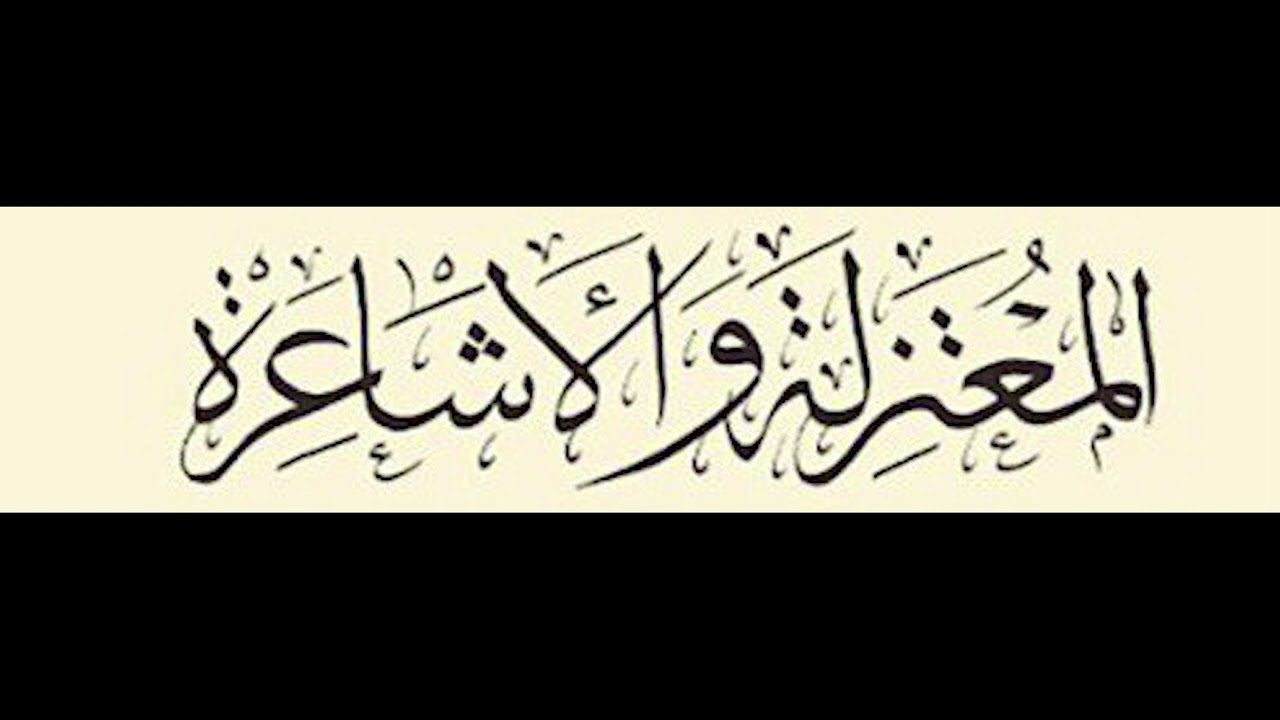 المُعْتَزِلَة وَالأَشَاعِرَة